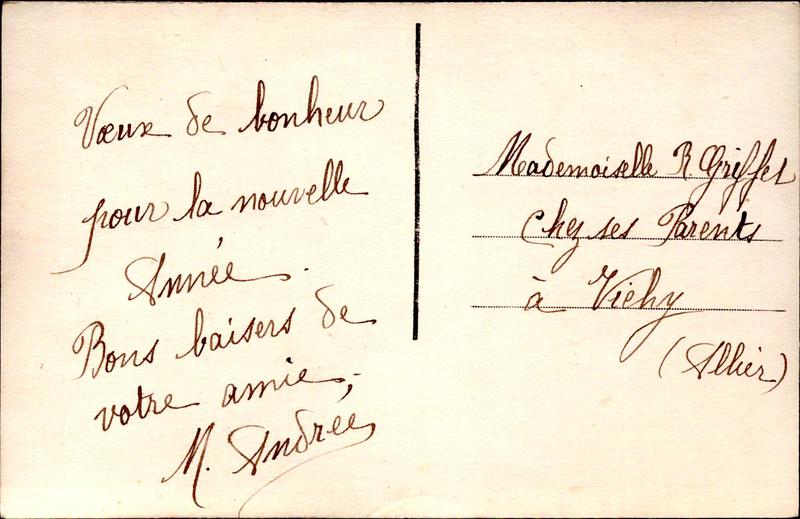 Vœux de bonheur
pour la nouvelle
Année.
Bons baisers de
votre amie,
M. Andrée
Mademoiselle R Griffet
Chez ses Parents
à Vichy
(Allier)